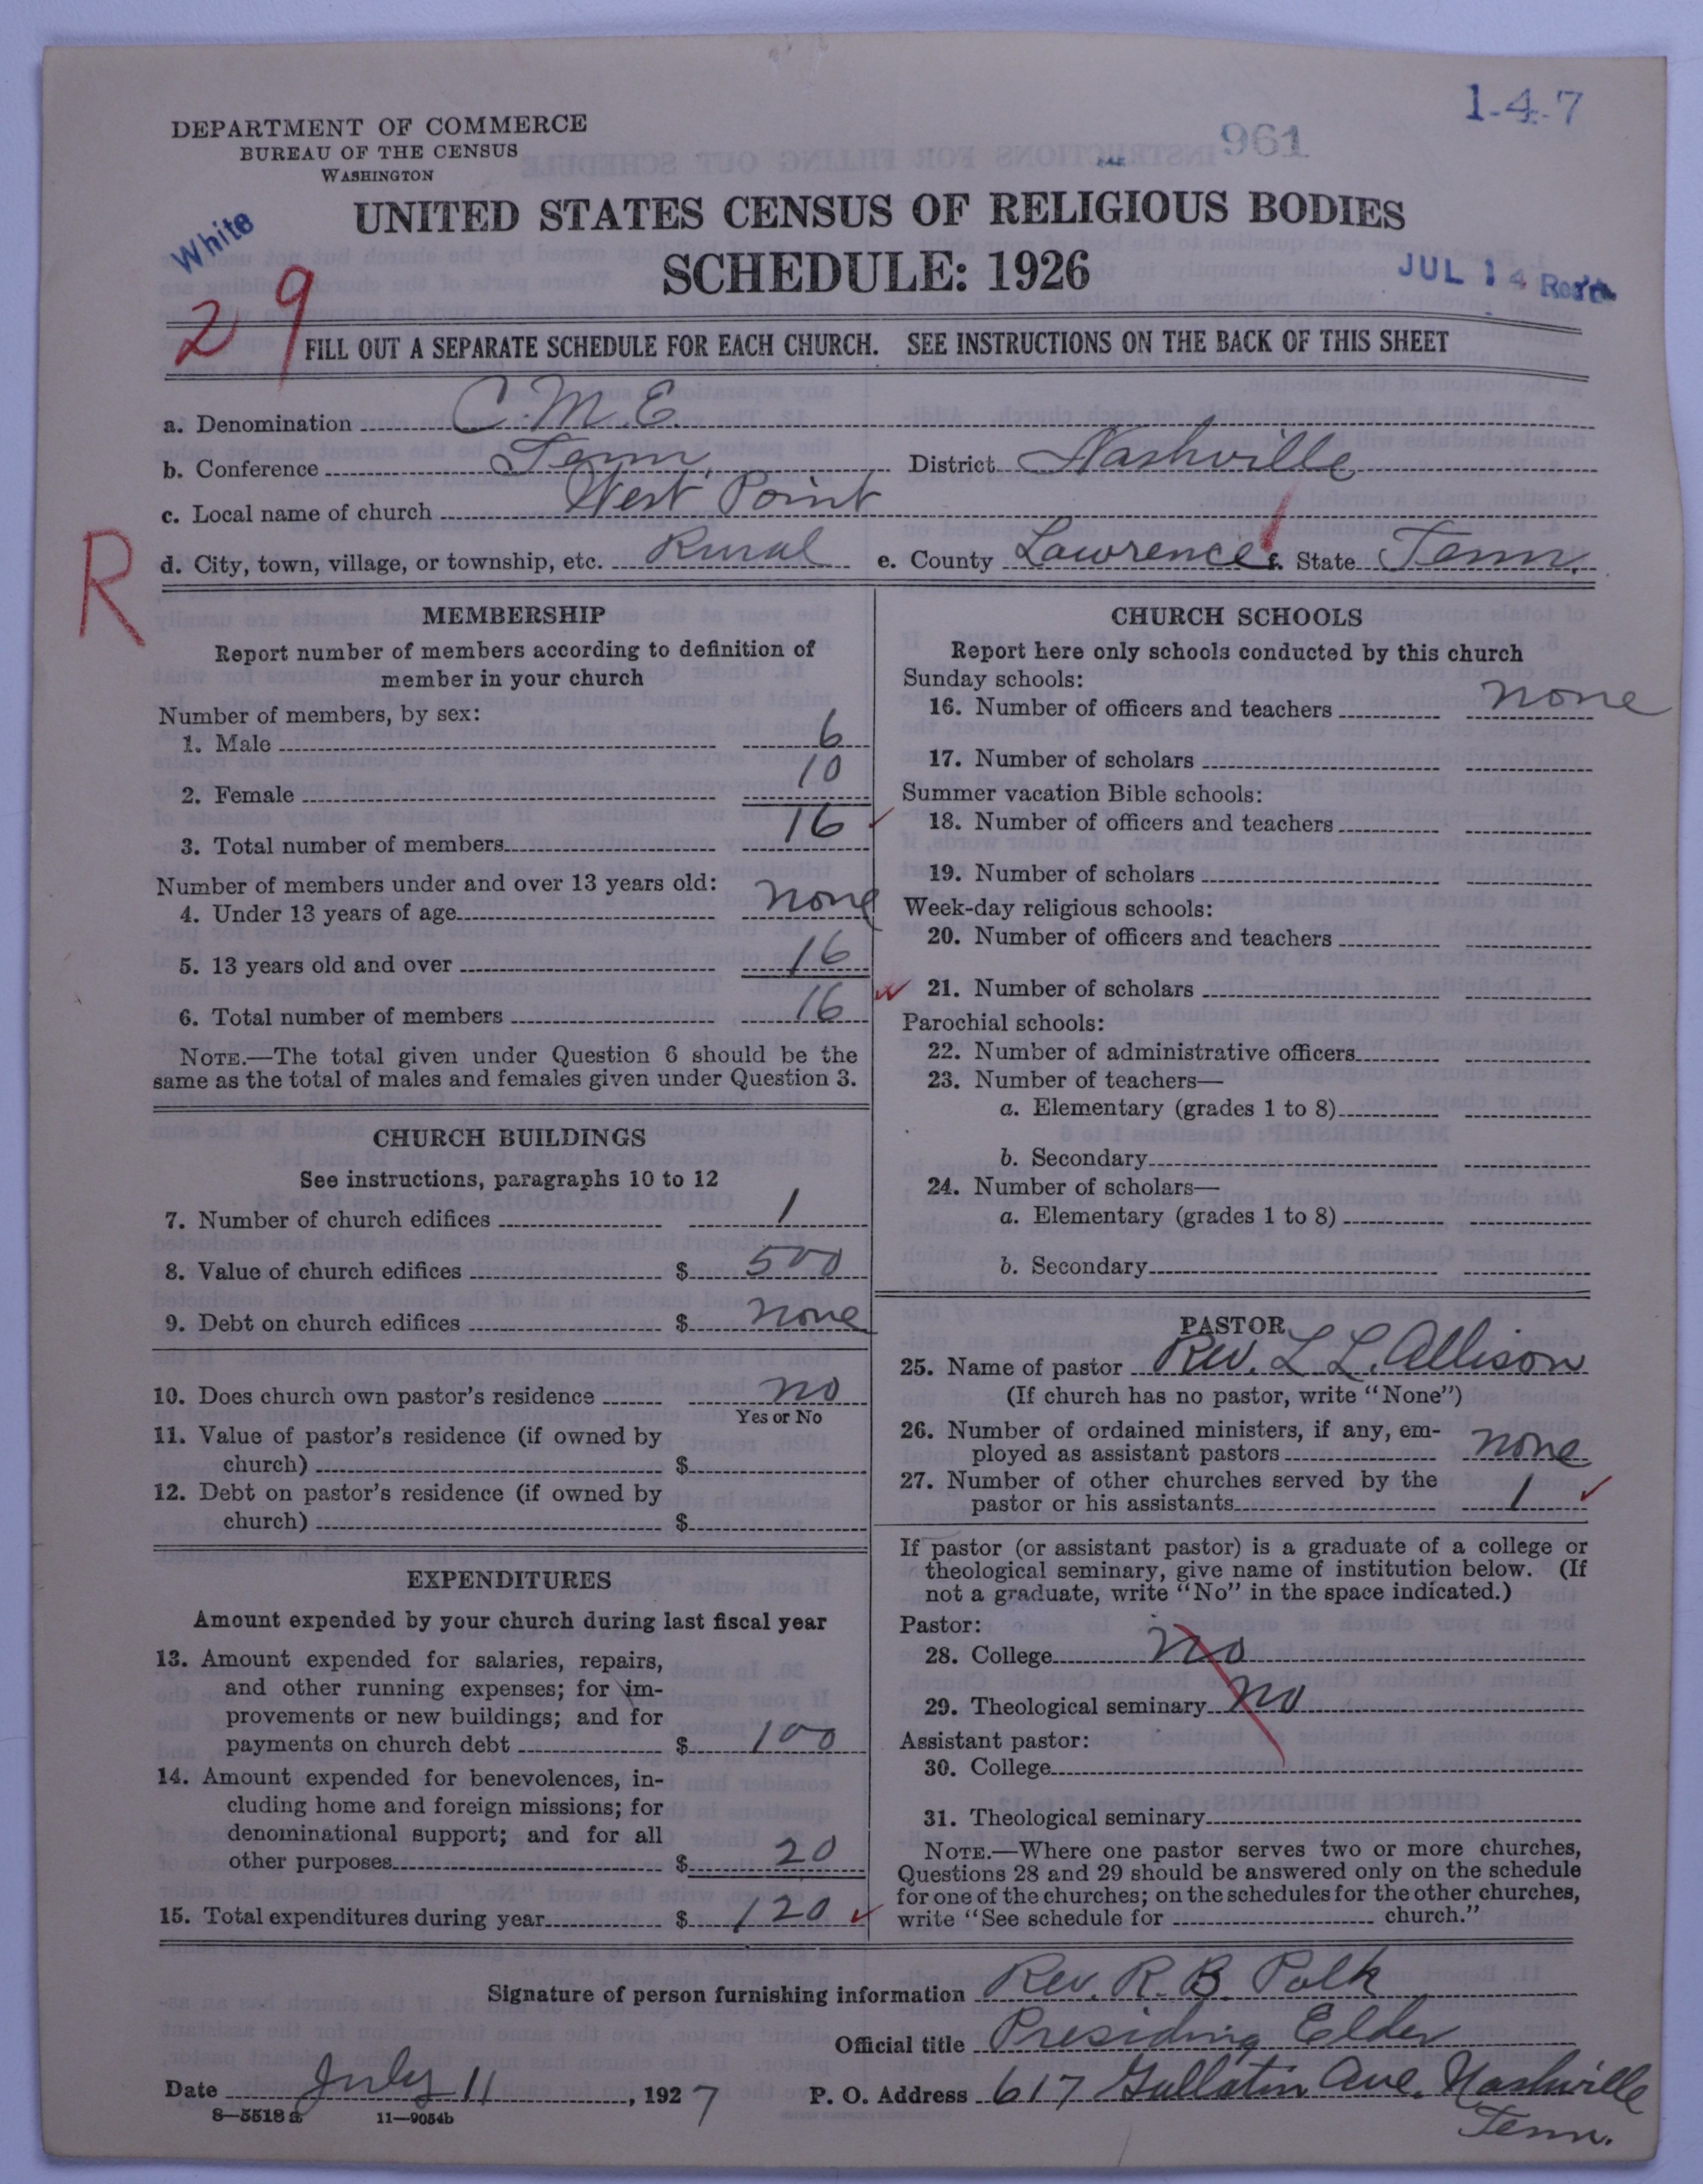 1-4-7
961
DEPARTMENT OF COMMERCE
BUREAU OF THE CENSUS
WASHINGTON
White
UNITED STATES CENSUS OF RELIGIOUS BODIES
SCHEDULE: 1926
JUL 14 Rec'd
29
FILL OUT A SEPARATE SCHEDULE FOR EACH CHURCH. SEE INSTRUCTIONS ON THE BACK OF THIS SHEET
a. Denomination C.M.E.
b. Conference Tenn. District Nashville
c. Local name of church West Point
R
d. City, town, village, or township, etc. Rural e. County Lawrence f. State Tenn.
MEMBERSHIP
Report number of members according to definition of
member in your church
Number of members, by sex:
1. Male 6
2. Female 10
3. Total number of members 16
Number of members under and over 13 years old:
4. Under 13 years of age none
5. 13 years old and over 16
6. Total number of members 16
NOTE.—The total given under Question 6 should be the
same as the total of males and females given under Question 3.
CHURCH BUILDINGS
See instructions, paragraphs 10 to 12
7. Number of church edifices 1
8. Value of church edifices $ 500
9. Debt on church edifices $ none
10. Does church own pastor's residence no
Yes or No
11. Value of pastor's residence (if owned by
church) $
12. Debt on pastor's residence (if owned by
church) $
EXPENDITURES
Amount expended by your church during last fiscal year
13. Amount expended for salaries, repairs,
and other running expenses; for im-
provements or new buildings; and for
payments on church debt $ 100
14. Amount expended for benevolences, in-
cluding home and foreign missions; for
denominational support; and for all
other purposes $ 20
15. Total expenditures during year $ 120
CHURCH SCHOOLS
Report here only schools conducted by this church
Sunday schools:
16. Number of officers and teachers none
17. Number of scholars
Summer vacation Bible schools:
18. Number of officers and teachers
19. Number of scholars
Week-day religious schools:
20. Number of officers and teachers
21. Number of scholars
Parochial schools:
22. Number of administrative officers
23. Number of teachers—
a. Elementary (grades 1 to 8)
b. Secondary
24. Number of scholars—
a. Elementary (grades 1 to 8)
b. Secondary
PASTOR
25. Name of pastor Rev. L L. Allison
(If church has no pastor, write "None")
26. Number of ordained ministers, if any, em-
ployed as assistant pastors none
27. Number of other churches served by the
pastor or his assistants 1
If pastor (or assistant pastor) is a graduate of a college or
theological seminary, give name of institution below. (If
not a graduate, write "No" in the space indicated.)
Pastor:
28. College no
29. Theological seminary no
Assistant pastor:
30. College
31. Theological seminary
NOTE.—Where one pastor serves two or more churches,
Questions 28 and 29 should be answered only on the schedule
for one of the churches; on the schedules for the other churches,
write "See schedule for church."
Signature of person furnishing information Rev. R. B. Polk
Official title Presiding Elder
Date July 11, 1927 P. O. Address 617 Gallatin Ave. Nashville
Tenn.
8—5518 a 11—9054b